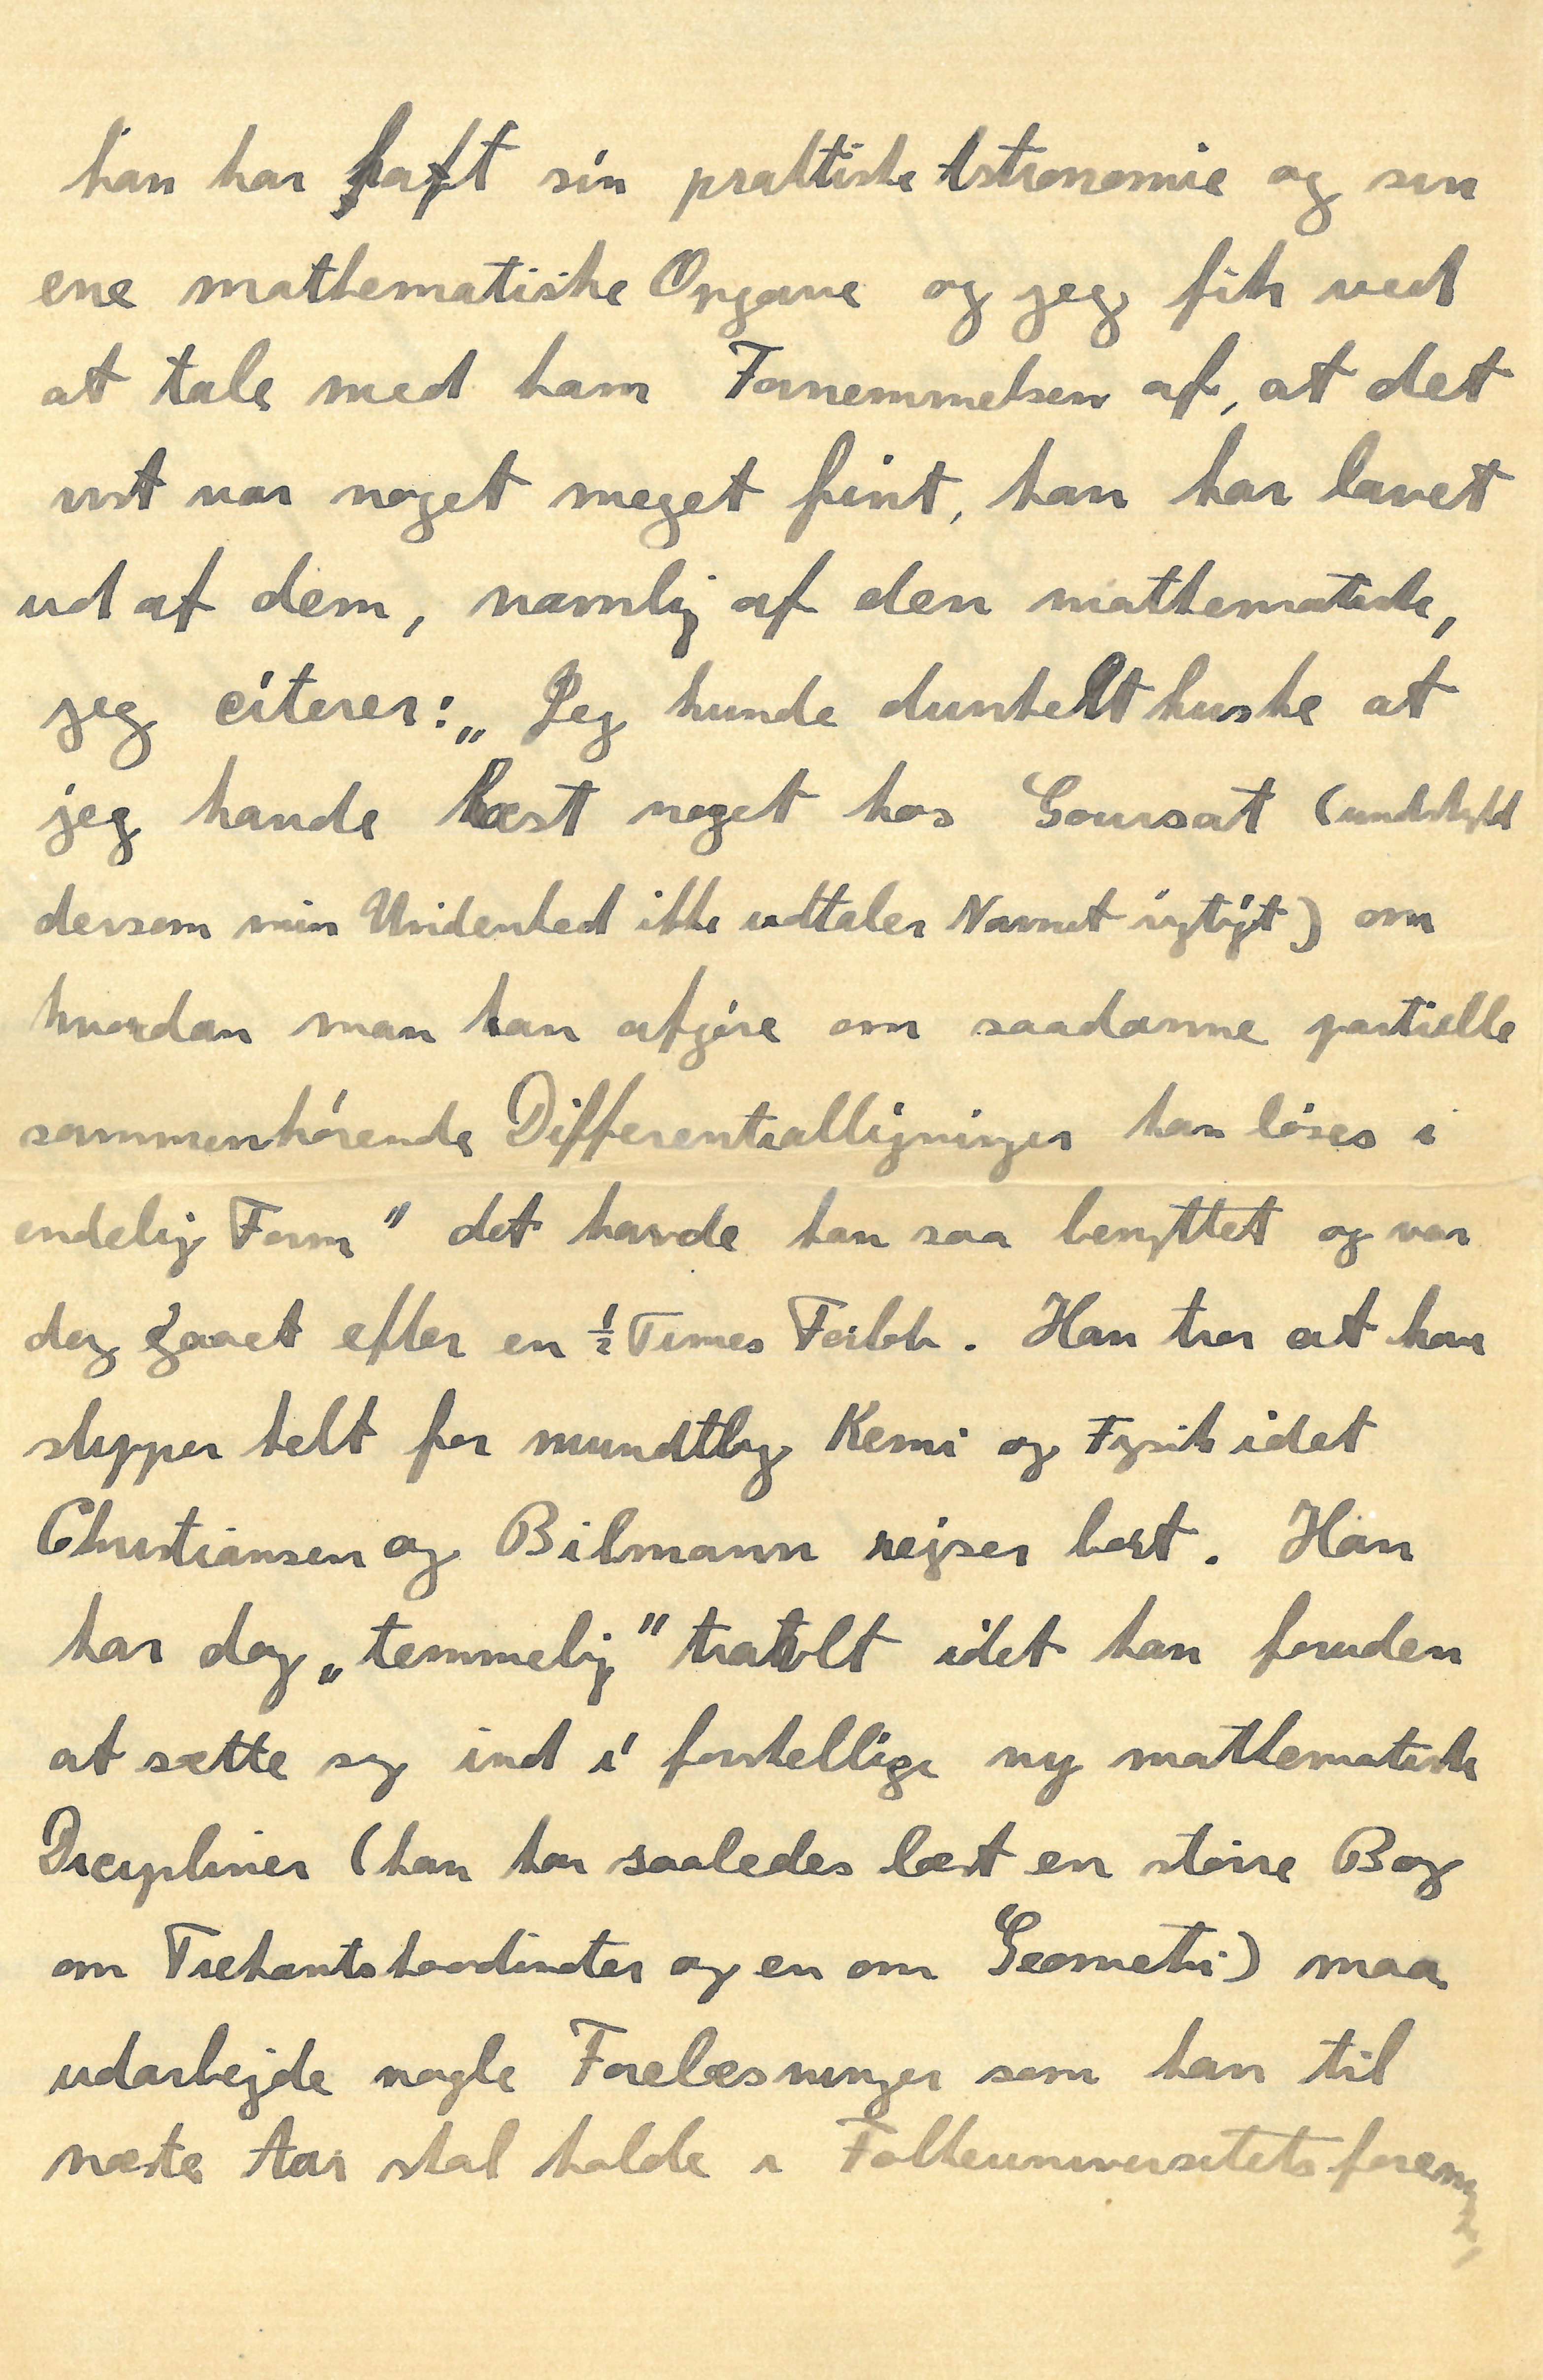 han har haft sin praktiske Astronomie og sin
ene mathematiske Opgave og jeg fik ved
at tale med ham Fornemmelsen af, at det
vist var noget meget fint, han har lavet
ud af dem, navnlig af den mathematiske,
jeg citerer: „Jeg kunde dunkelt huske at
jeg havde læst noget hos Goursat (undskyld
dersom min Uvidenhed ikke udtaler Navnet rigtigt) om
hvordan man kan afgøre om saadanne partielle
sammenhørende Differentialligninger kan løses i
endelig Form" det havde han saa benyttet og var
dog gaaet efter en ½ Times Forløb. Han tror at han
slipper helt for mundtlig Kemi og Fysik idet
Christiansen og Bilmann rejser bort. Han
har dog „temmelig" travlt idet han foruden
at sætte sig ind i forskellige ny mathematiske
Dicipliner (han har saaledes læst en større Bog
om Trekantskoordinater og en om Geometri) maa
udarbejde nogle Forelæsninger som han til
næste Aar skal holde i Folkeuniversitetsforening,